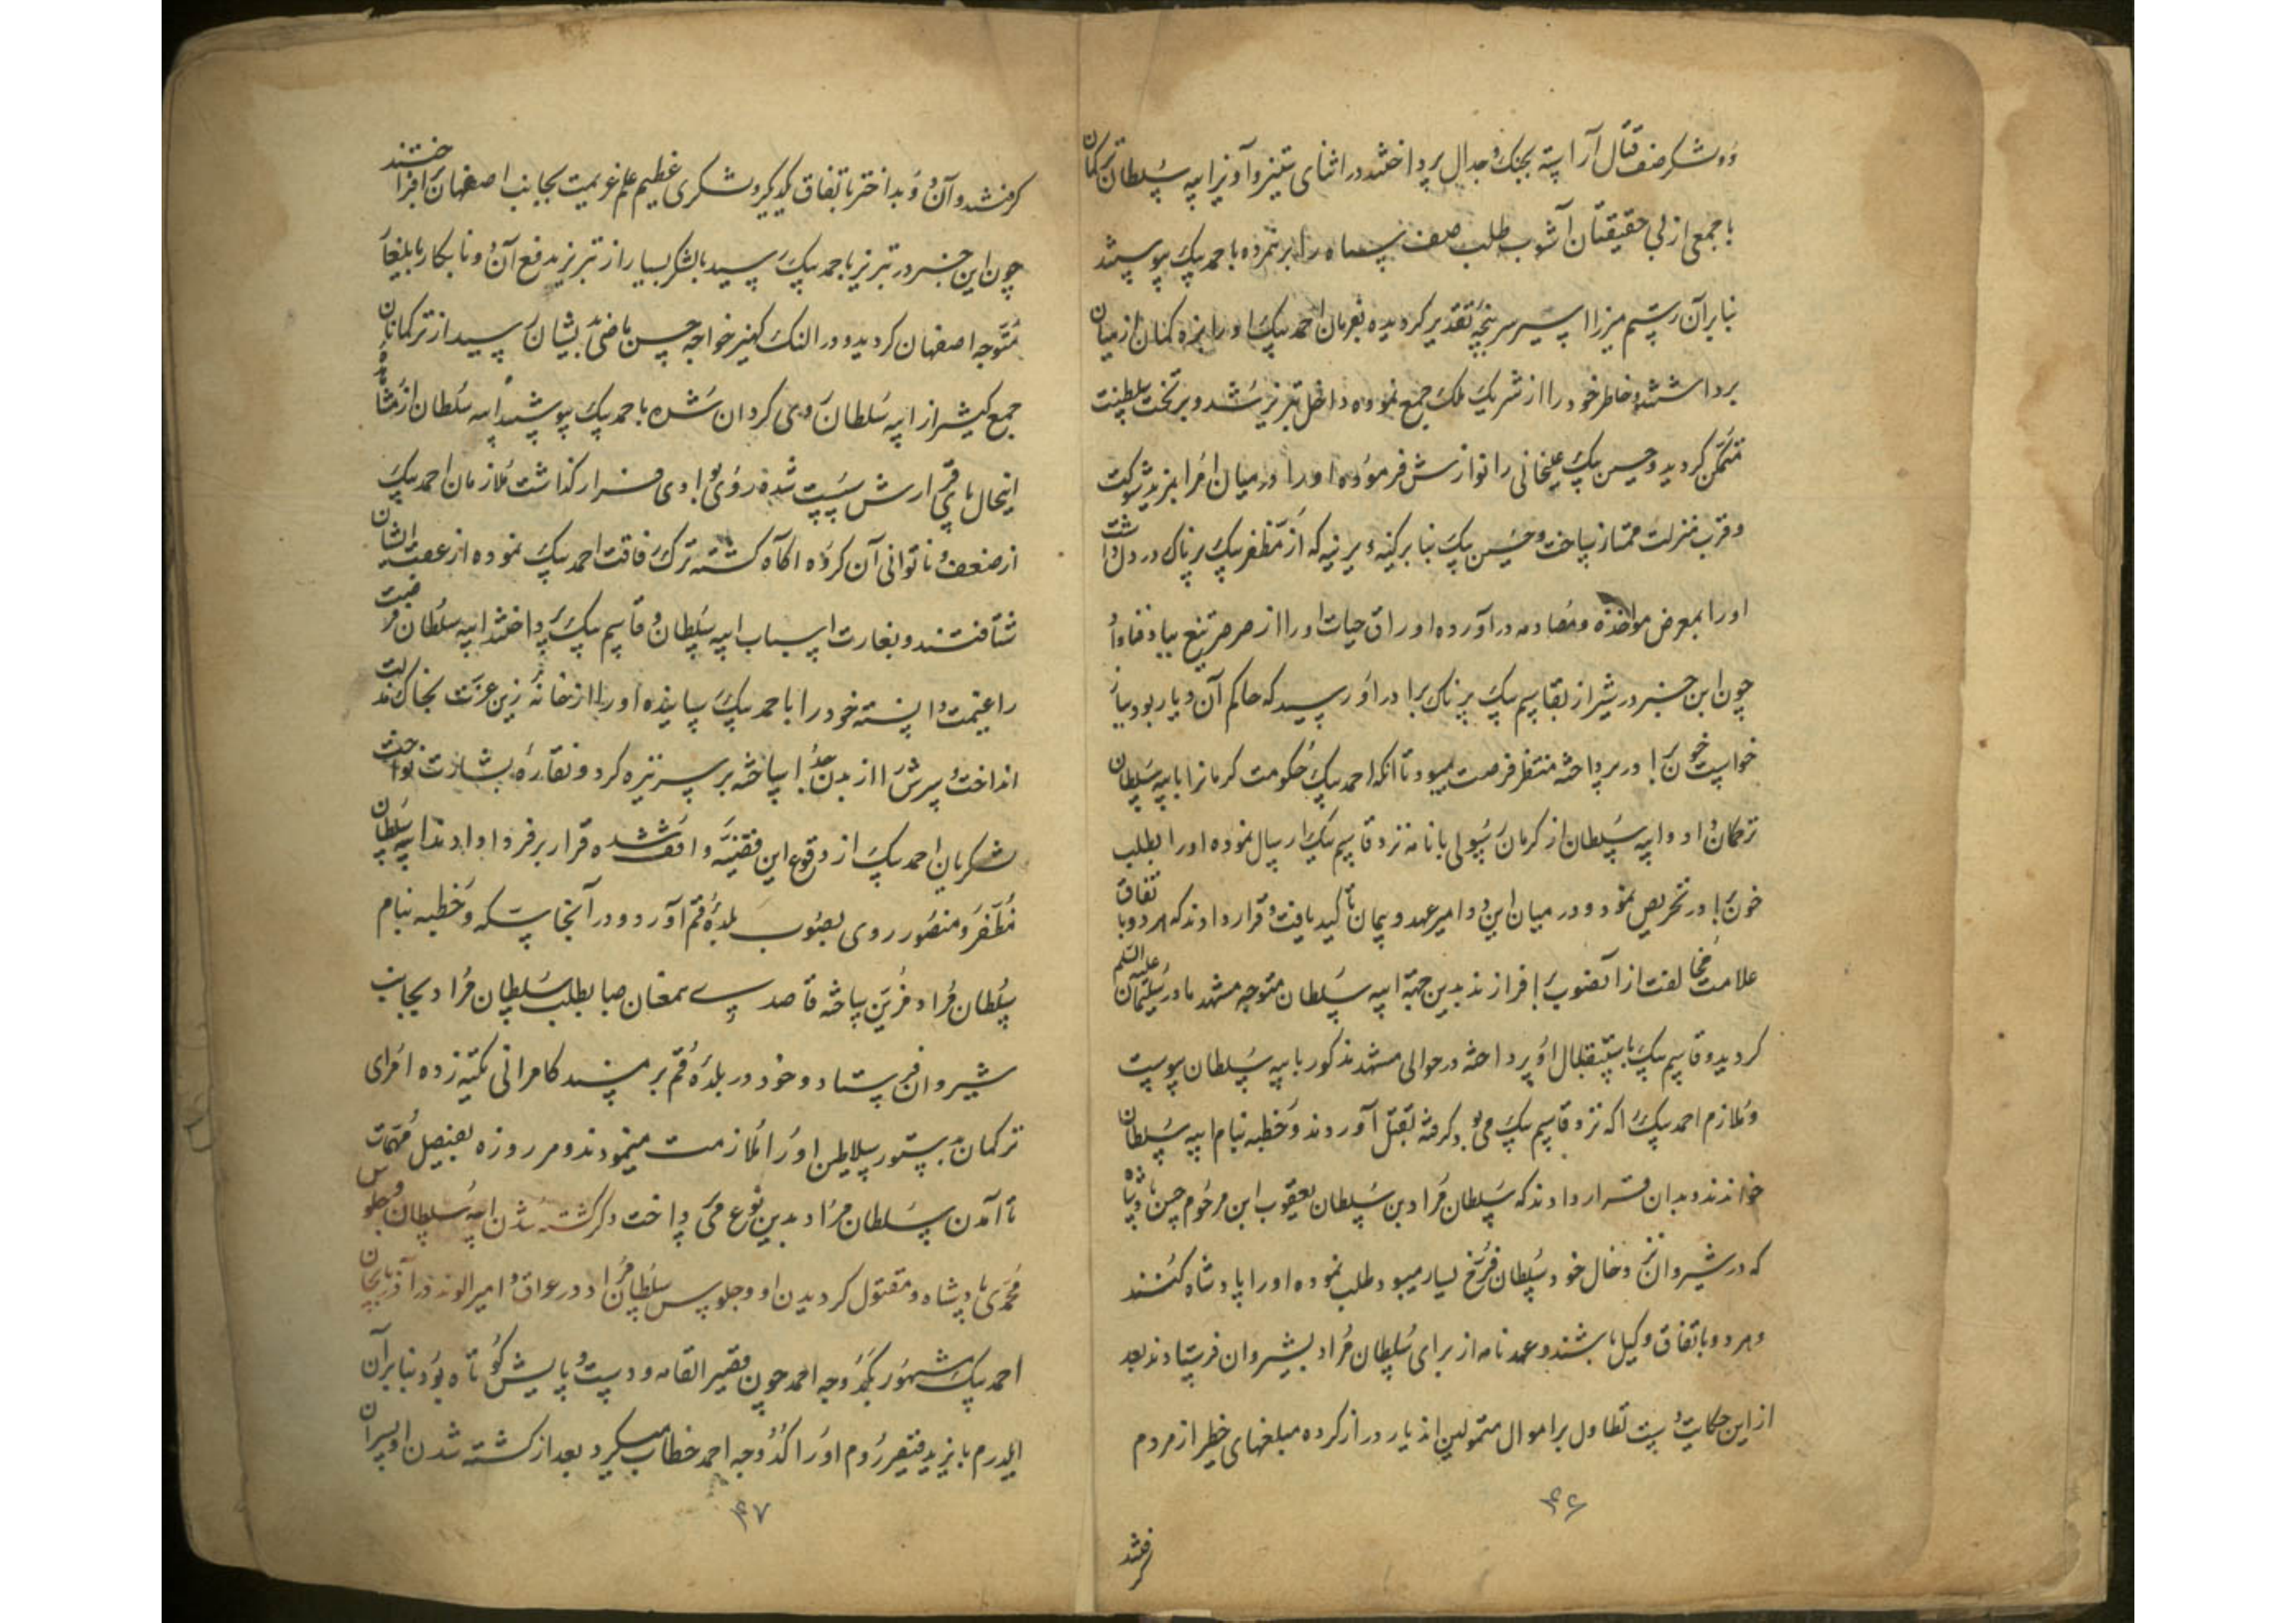 دو لشکر صف قتال آراسته بجنک و جدال پرداختند در اثنای ستیز و آویز ایبه سلطان ترکمان
با جمعی از بی حقیقتان آشوب طلب صف سپاه را بر همزده با حمد بیک پیوستند
بنابرآن رستم میرزا اسیر سرپنجهٔ تقدیر کردیده بفرمان احمد بیک او را بزه کمان از میان
برداشتند و خاطر خود را از شریک ملک جمع نموده داخل تبریز شد و بر تخت سلطنت
متمکن کردید و حسین بیک علیخانی را نوازش فرموده او را در میان امرا بمزید شوکت
و قرب منزلت ممتاز ساخت و حسین بیک بنا بر کینهٔ دیرینه که از مظفر بیک پرناک در دل داشت
او را بمعرض مواخذه و مصادمه در آورده اوراق حیات او را از صرصر تیغ بباد فنا داد
چون این خبر در شیراز بقاسم بیک پرناک برادر او رسید که حاکم آن دیار بود بباز
خواست خون برادر پرداخته منتظر فرصت میبود تا آنکه احمد بیک حکومت کرمانرا بایبه سلطان
ترکمان داد و ایبه سلطان از کرمان رسولی با نامه نزد قاسم بیک ارسال نموده او را بطلب
خون برادر تحریص نمود و در میان این دو امیر عهد و پیمان تاکید یافت و قرار دادند که هر دو باتفاق
علامت مخالفت از آنصوب برافرازند بدین جهة ایبه سلطان متوجه مشهد مادر سلیمان علیه السلم
کردید و قاسم بیک باستقبال او پرداخته در حوالی مشهد مذکور بایبه سلطان پیوست
و ملازم احمد بیک را که نزد قاسم بیک می بود کرفته بقتل آوردند و خطبه بنام ایبه سلطان
خواندند و بدان قرار دادند که سلطان مراد بن سلطان یعقوب ابن مرحوم حسن پادشاه
که در شیروان نزد خال خود سلطان فرخ یسار میبود طلب نموده او را پادشاه کنند
و هر دو باتفاق وکیل باشند و عهد نامه از برای سلطان مراد بشیروان فرستادند بعد
از این حکایت دست تطاول بر اموال متمولین اندیار دراز کرده مبلغهای خطیر از مردم
۴۶
کرفتند
کرفتند و آن دو بداختر باتفاق یکدیکر و لشکری عظیم علم عزیمت بجانب اصفهان افراختند
چون این خبر در تبریز باحمد بیک رسید بالشکر بسیار از تبریز بدفع آن دو نابکار بایلغار
متوجه اصفهان کردید و در النک کنیز خواجه حسن ماضی بایشان رسید از ترکمانان
جمع کثیر از ایبه سلطان روی کردان شده باحمد بیک پیوستند ایبه سلطان از مشاهدهٔ
اینحال پای قرارش سست شده روی بوادی فرار کذاشت ملازمان احمد بیک
از ضعف و ناتوانی آن کروه اکاه کشته ترک رفاقت احمد بیک نموده از عقب ایشان
شتافتند و بغارت اسباب ایبه سلطان و قاسم بیک پرداختند ایبه سلطان فرصت
را غنیمت دانسته خود را باحمد بیک رسانیده او را از خانهٔ زین عزت بخاک مذلت
انداخت و سرش را از بدن جدا ساخته بر سر نیزه کرد و نقاره بشارت نواخت
لشکریان احمد بیک از وقوع این قضیه واقف شده قرار بر فرار دادند ایبه سلطان
مظفر و منصور روی بصوب بلدهٔ قم آورد و در آنجا سکه و خطبه بنام
سلطان مراد مزین ساخته قاصدی همعنان صبا بطلب سلطان مراد بجانب
شیروان فرستاد و خود در بلدهٔ قم بر مسند کامرانی تکیه زده امرای
ترکمان بدستور سلاطین او را ملازمت مینمودند و هر روزه بفیصل مهمات
تا آمدن سلطان مراد بدین نوع می پرداخت ذکر کشته شدن ایبه سلطان و جلوس
محمدی پادشاه و مقتول کردیدن او و جلوس سلطان مراد در عراق و امیر الوند در آذربایجان
احمد بیک مشهور بکدوجه احمد چون قصیر القامه و دست و پایش کوتاه بود بنابرآن
ایلدرم بایزید قیصر روم او را کدوجه احمد خطاب میکرد بعد از کشته شدن او پسران
۴۷